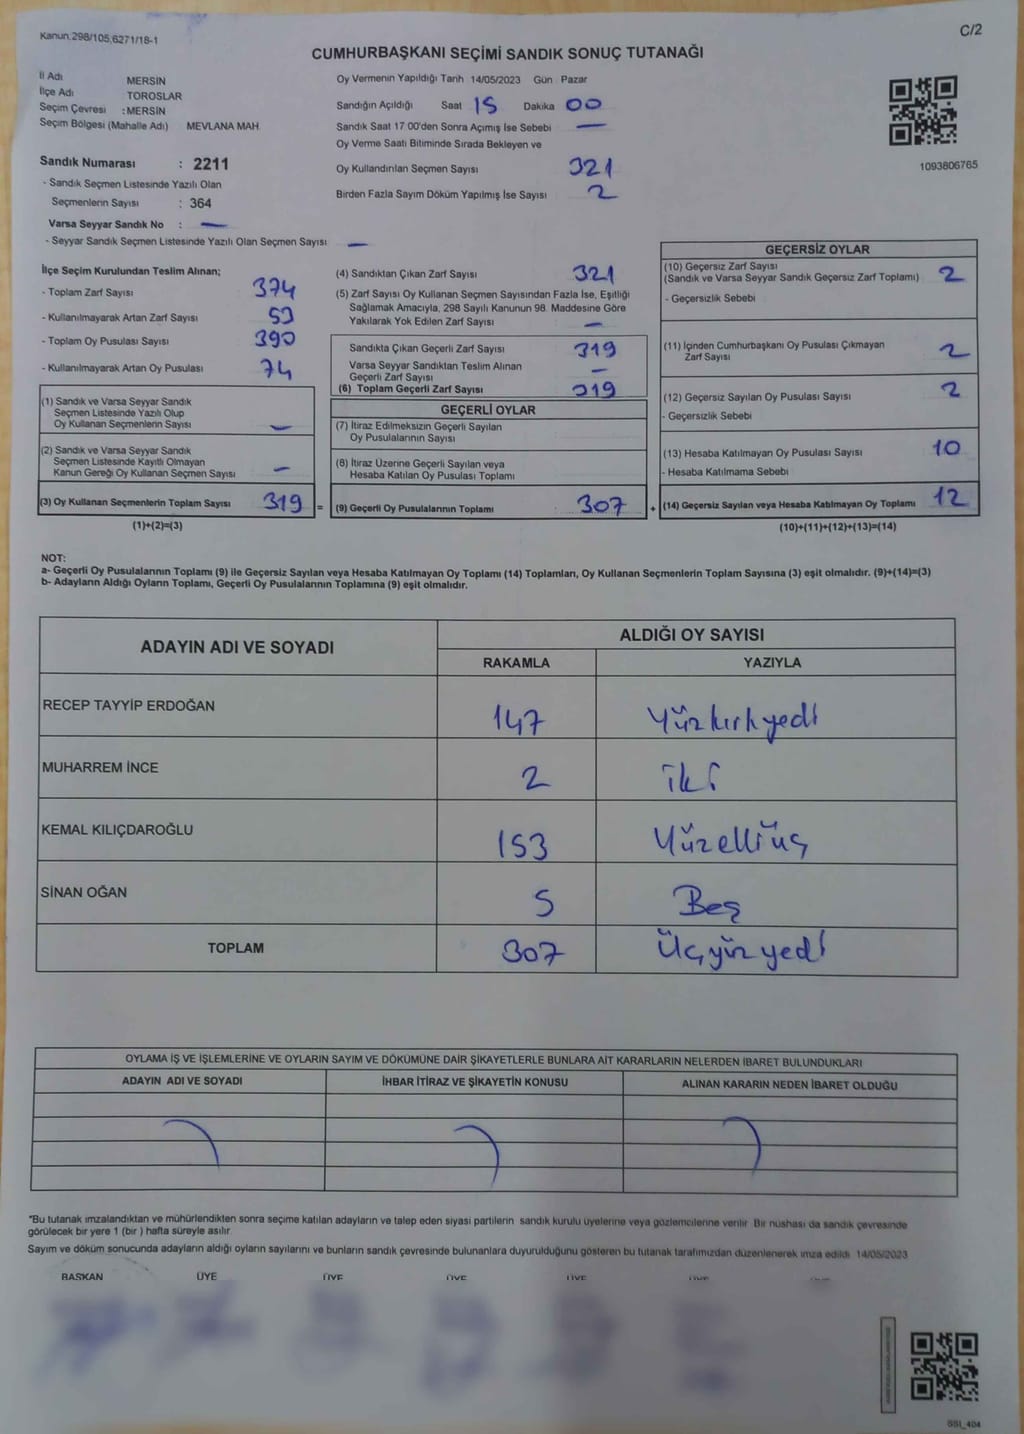 Kanun.298/105,6271/18-1
C/2
CUMHURBAŞKANI SEÇİMİ SANDIK SONUÇ TUTANAĞI
İl Adı MERSİN
İlçe Adı TOROSLAR
Seçim Çevresi : MERSİN
Seçim Bölgesi (Mahalle Adı) MEVLANA MAH.
Sandık Numarası : 2211
- Sandık Seçmen Listesinde Yazılı Olan
Seçmenlerin Sayısı : 364
Varsa Seyyar Sandık No : —
- Seyyar Sandık Seçmen Listesinde Yazılı Olan Seçmen Sayısı —
Oy Vermenin Yapıldığı Tarih 14/05/2023 Gün Pazar
Sandığın Açıldığı Saat 15 Dakika 00
Sandık Saat 17 00'den Sonra Açımış İse Sebebi —
Oy Verme Saati Bitiminde Sırada Bekleyen ve
Oy Kullandırılan Seçmen Sayısı 321
Birden Fazla Sayım Döküm Yapılmış İse Sayısı 2
1093806765
İlçe Seçim Kurulundan Teslim Alınan;
- Toplam Zarf Sayısı 374
- Kullanılmayarak Artan Zarf Sayısı 53
- Toplam Oy Pusulası Sayısı 390
- Kullanılmayarak Artan Oy Pusulası 74
(1) Sandık ve Varsa Seyyar Sandık
Seçmen Listesinde Yazılı Olup
Oy Kullanan Seçmenlerin Sayısı —
(2) Sandık ve Varsa Seyyar Sandık
Seçmen Listesinde Kayıtlı Olmayan
Kanun Gereği Oy Kullanan Seçmen Sayısı —
(3) Oy Kullanan Seçmenlerin Toplam Sayısı 319 =
(1)+(2)=(3)
(4) Sandıktan Çıkan Zarf Sayısı 321
(5) Zarf Sayısı Oy Kullanan Seçmen Sayısından Fazla İse, Eşitliği
Sağlamak Amacıyla, 298 Sayılı Kanunun 98. Maddesine Göre
Yakılarak Yok Edilen Zarf Sayısı —
Sandıkta Çıkan Geçerli Zarf Sayısı 319
Varsa Seyyar Sandıktan Teslim Alınan
Geçerli Zarf Sayısı —
(6) Toplam Geçerli Zarf Sayısı 319
GEÇERLİ OYLAR
(7) İtiraz Edilmeksizin Geçerli Sayılan
Oy Pusulalarının Sayısı
(8) İtiraz Üzerine Geçerli Sayılan veya
Hesaba Katılan Oy Pusulası Toplamı
(9) Geçerli Oy Pusulalarının Toplamı 307 +
GEÇERSİZ OYLAR
(10) Geçersiz Zarf Sayısı
(Sandık ve Varsa Seyyar Sandık Geçersiz Zarf Toplamı) 2
- Geçersizlik Sebebi
(11) İçinden Cumhurbaşkanı Oy Pusulası Çıkmayan
Zarf Sayısı 2
(12) Geçersiz Sayılan Oy Pusulası Sayısı 2
- Geçersizlik Sebebi
(13) Hesaba Katılmayan Oy Pusulası Sayısı 10
- Hesaba Katılmama Sebebi
(14) Geçersiz Sayılan veya Hesaba Katılmayan Oy Toplamı 12
(10)+(11)+(12)+(13)=(14)
NOT:
a- Geçerli Oy Pusulalarının Toplamı (9) ile Geçersiz Sayılan veya Hesaba Katılmayan Oy Toplamı (14) Toplamları, Oy Kullanan Seçmenlerin Toplam Sayısına (3) eşit olmalıdır. (9)+(14)=(3)
b- Adayların Aldığı Oyların Toplamı, Geçerli Oy Pusulalarının Toplamına (9) eşit olmalıdır.
ADAYIN ADI VE SOYADI ALDIĞI OY SAYISI
RAKAMLA YAZIYLA
RECEP TAYYİP ERDOĞAN 147 Yüzkırkyedi
MUHARREM İNCE 2 İki
KEMAL KILIÇDAROĞLU 153 Yüzelliüç
SİNAN OĞAN 5 Beş
TOPLAM 307 Üçyüzyedi
OYLAMA İŞ VE İŞLEMLERİNE VE OYLARIN SAYIM VE DÖKÜMÜNE DAİR ŞİKAYETLERLE BUNLARA AİT KARARLARIN NELERDEN İBARET BULUNDUKLARI
ADAYIN ADI VE SOYADI İHBAR İTİRAZ VE ŞİKAYETİN KONUSU ALINAN KARARIN NEDEN İBARET OLDUĞU
*Bu tutanak imzalandıktan ve mühürlendikten sonra seçime katılan adayların ve talep eden siyasi partilerin sandık kurulu üyelerine veya gözlemcilerine verilir. Bir nüshası da sandık çevresinde
görülecek bir yere 1 (bir ) hafta süreyle asılır.
Sayım ve döküm sonucunda adayların aldığı oyların sayılarını ve bunların sandık çevresinde bulunanlara duyurulduğunu gösteren bu tutanak tarafımızdan düzenlenerek imza edildi. 14/05/2023
BAŞKAN ÜYE ÜYE ÜYE ÜYE
SSI_404